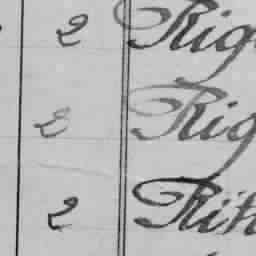 2 Rig
2 Rig
2 Rit